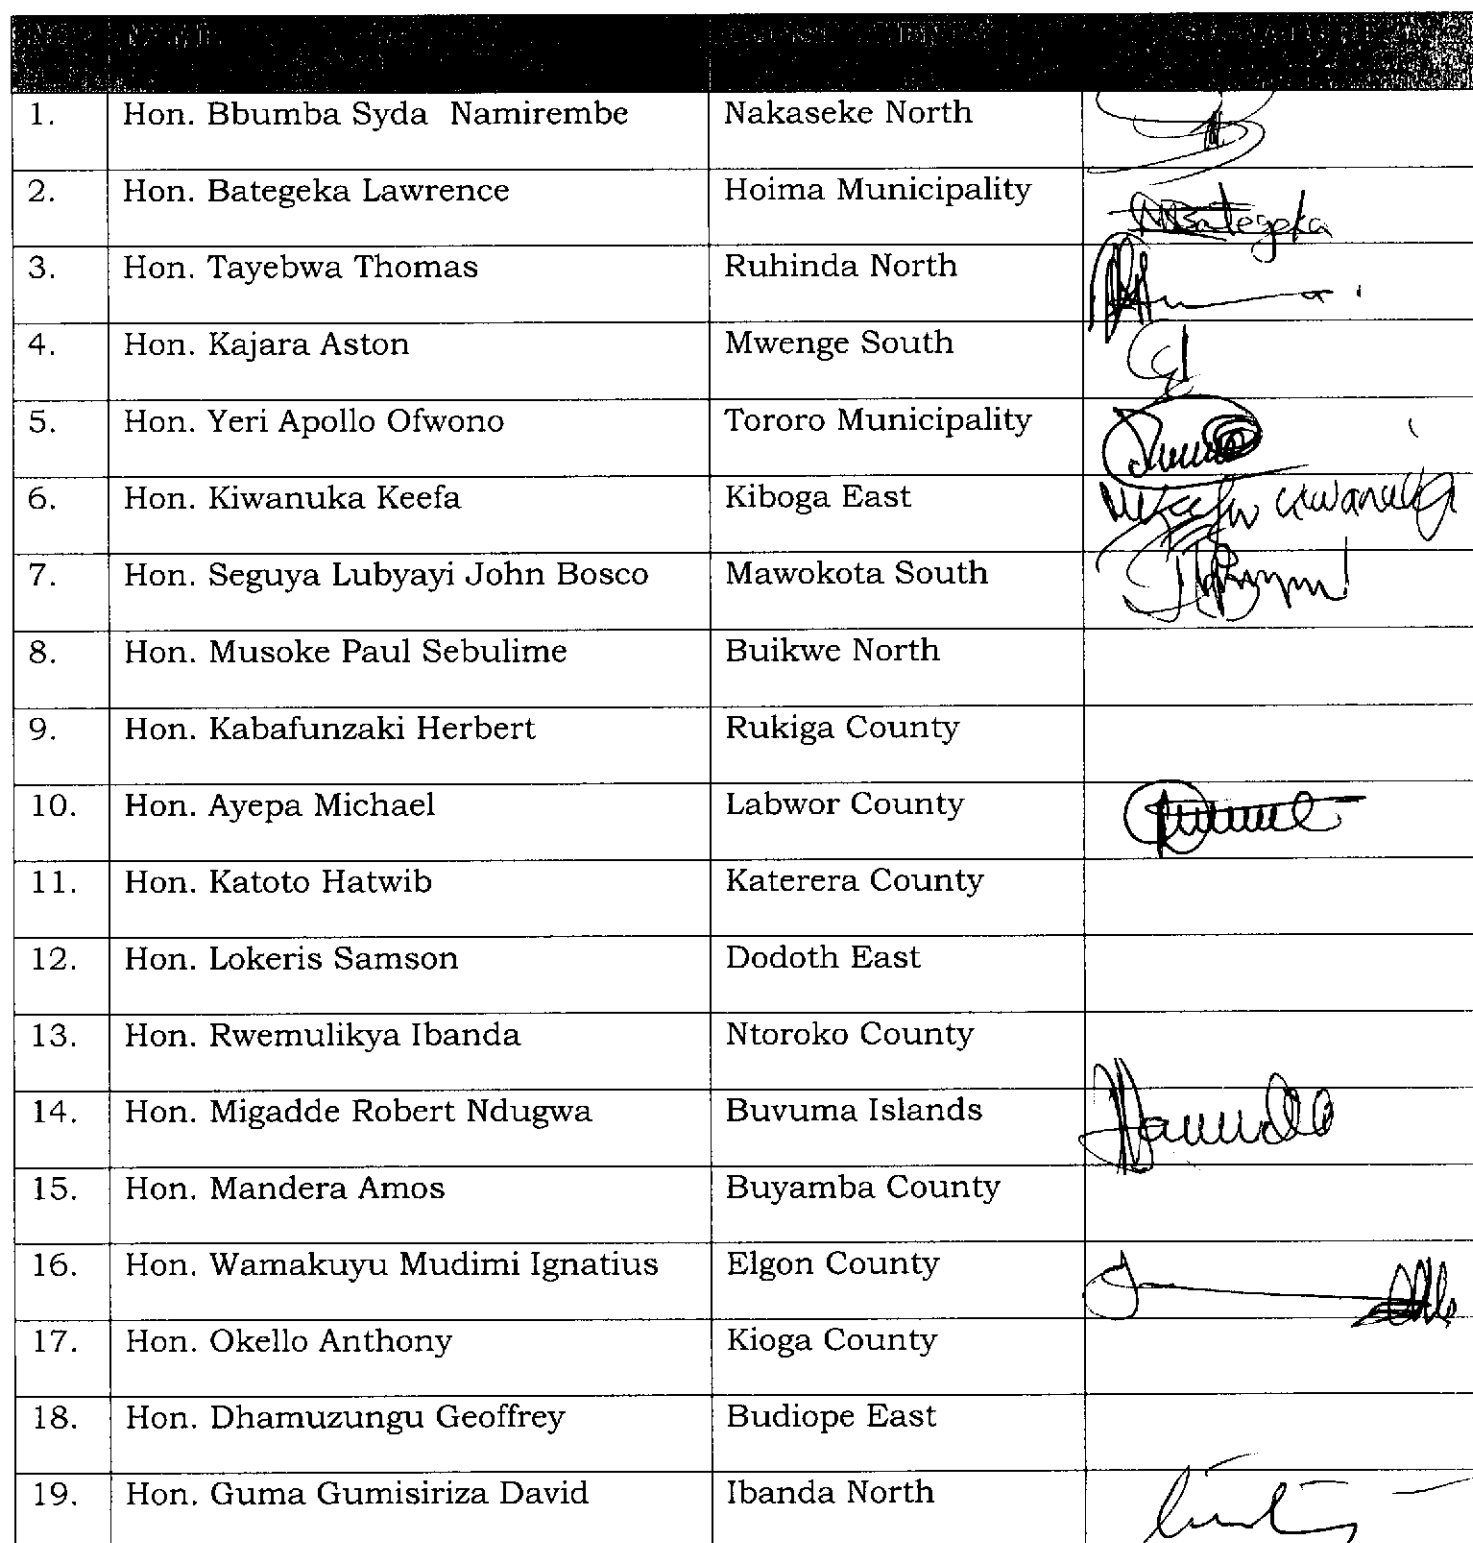 1. Hon. Bbumba Syda Namirembe Nakaseke North
2. Hon. Bategeka Lawrence Hoima Municipality Bategeka
3. Hon. Tayebwa Thomas Ruhinda North
4. Hon. Kajara Aston Mwenge South
5. Hon. Yeri Apollo Ofwono Tororo Municipality
6. Hon. Kiwanuka Keefa Kiboga East
7. Hon. Seguya Lubyayi John Bosco Mawokota South
8. Hon. Musoke Paul Sebulime Buikwe North
9. Hon. Kabafunzaki Herbert Rukiga County
10. Hon. Ayepa Michael Labwor County
11. Hon. Katoto Hatwib Katerera County
12. Hon. Lokeris Samson Dodoth East
13. Hon. Rwemulikya Ibanda Ntoroko County
14. Hon. Migadde Robert Ndugwa Buvuma Islands
15. Hon. Mandera Amos Buyamba County
16. Hon. Wamakuyu Mudimi Ignatius Elgon County
17. Hon. Okello Anthony Kioga County
18. Hon. Dhamuzungu Geoffrey Budiope East
19. Hon. Guma Gumisiriza David Ibanda North